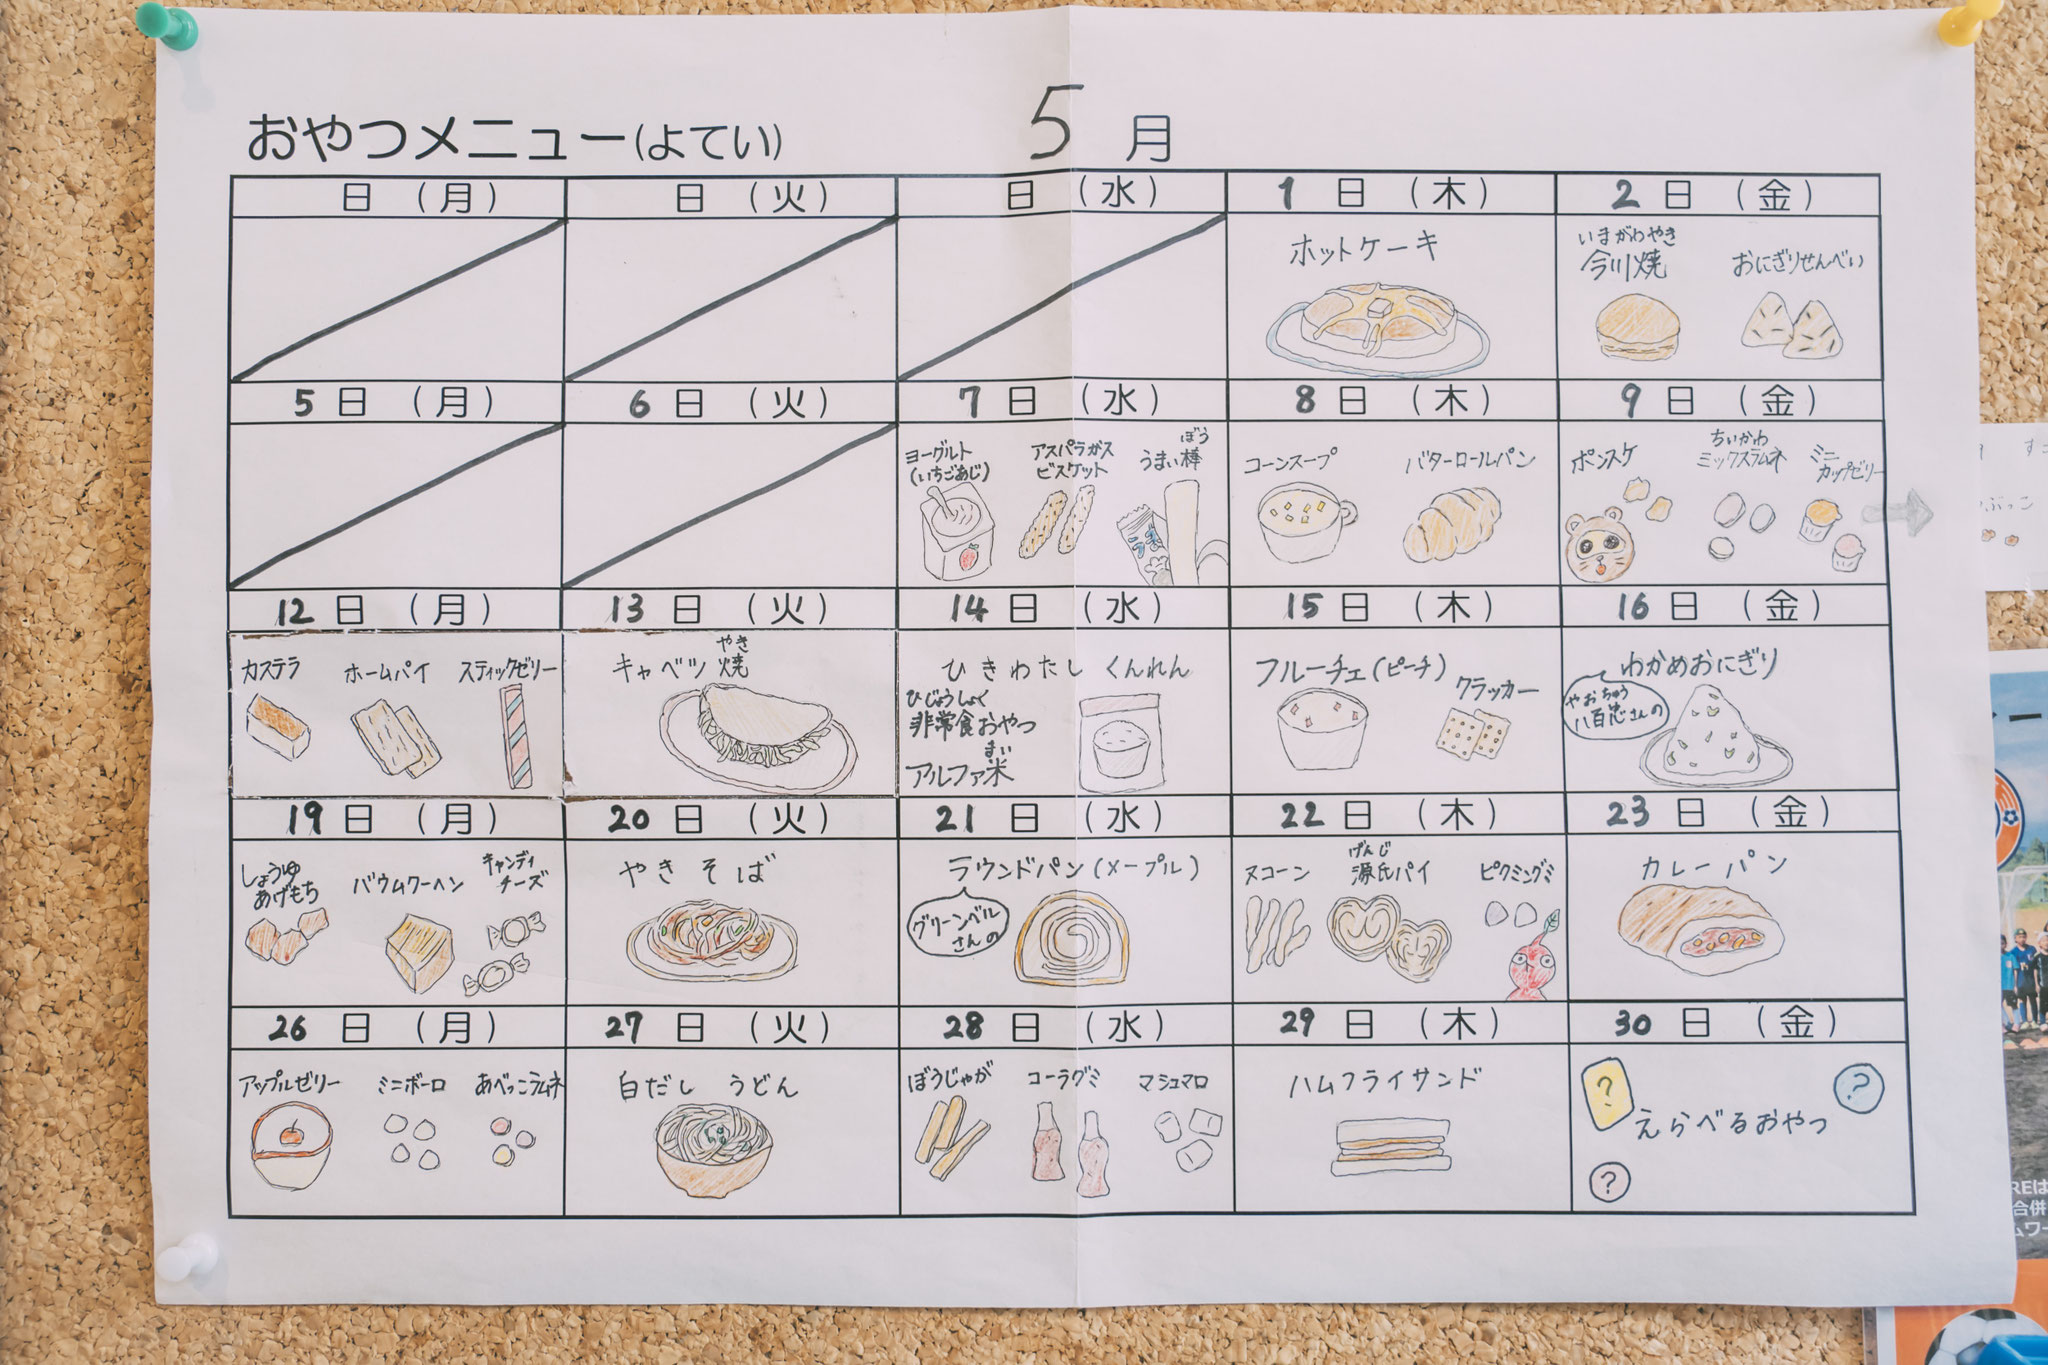 おやつメニュー(よてい) 5 月
日 (月) 日 (火) 日 (水) 1 日 (木) 2 日 (金)
ホットケーキ
いまがわやき
今川焼
おにぎりせんべい
5 日 (月) 6 日 (火) 7 日 (水) 8 日 (木) 9 日 (金)
ヨーグルト
(いちごあじ)
アスパラガス
ビスケット
ぼう
うまい棒
コーンスープ
バターロールパン
ポンスケ
ちいかわ
ミックスラムネ
ミニ
カップゼリー
12 日 (月) 13 日 (火) 14 日 (水) 15 日 (木) 16 日 (金)
カステラ
ホームパイ
スティックゼリー
やき
キャベツ焼
ひきわたし くんれん
ひじょうしょく
非常食おやつ
まい
アルファ米
フルーチェ(ピーチ)
クラッカー
わかめおにぎり
やおちゅう
八百忠さんの
19 日 (月) 20 日 (火) 21 日 (水) 22 日 (木) 23 日 (金)
しょうゆ
あげもち
バウムクーヘン
キャンディ
チーズ
やきそば
ラウンドパン(メープル)
グリーンベル
さんの
ヌコーン
げんじ
源氏パイ
ピクミングミ
カレーパン
26 日 (月) 27 日 (火) 28 日 (水) 29 日 (木) 30 日 (金)
アップルゼリー
ミニボーロ
あべっこラムネ
白だし うどん
ぼうじゃが
コーラグミ
マシュマロ
ハムフライサンド
?
?
えらべるおやつ
?